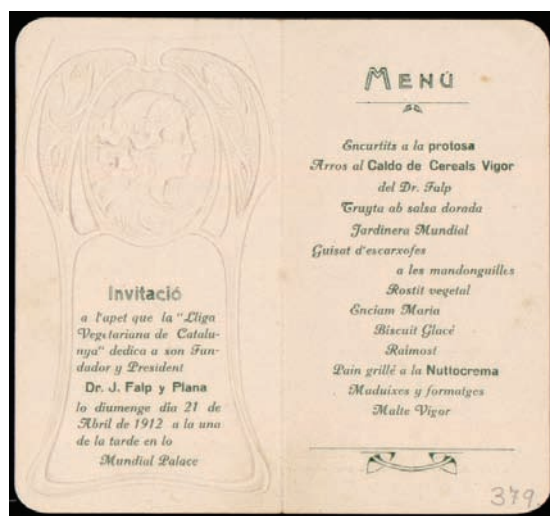 Invitació
a l'apet que la "Lliga
Vegetariana de Catalu-
nya" dedica a son Fun-
dador y President
Dr. J. Falp y Plana
lo diumenge dia 21 de
Abril de 1912 a la una
de la tarde en lo
Mundial Palace
MENÚ
Encurtits a la protosa
Arros al Caldo de Cereals Vigor
del Dr. Falp
Truyta ab salsa dorada
Jardinera Mundial
Guisat d'escarxofes
a les mandonguilles
Rostit vegetal
Enciam Maria
Biscuit Glacé
Raimost
Pain grillé a la Nuttocrema
Maduixes y formatges
Malte Vigor
379